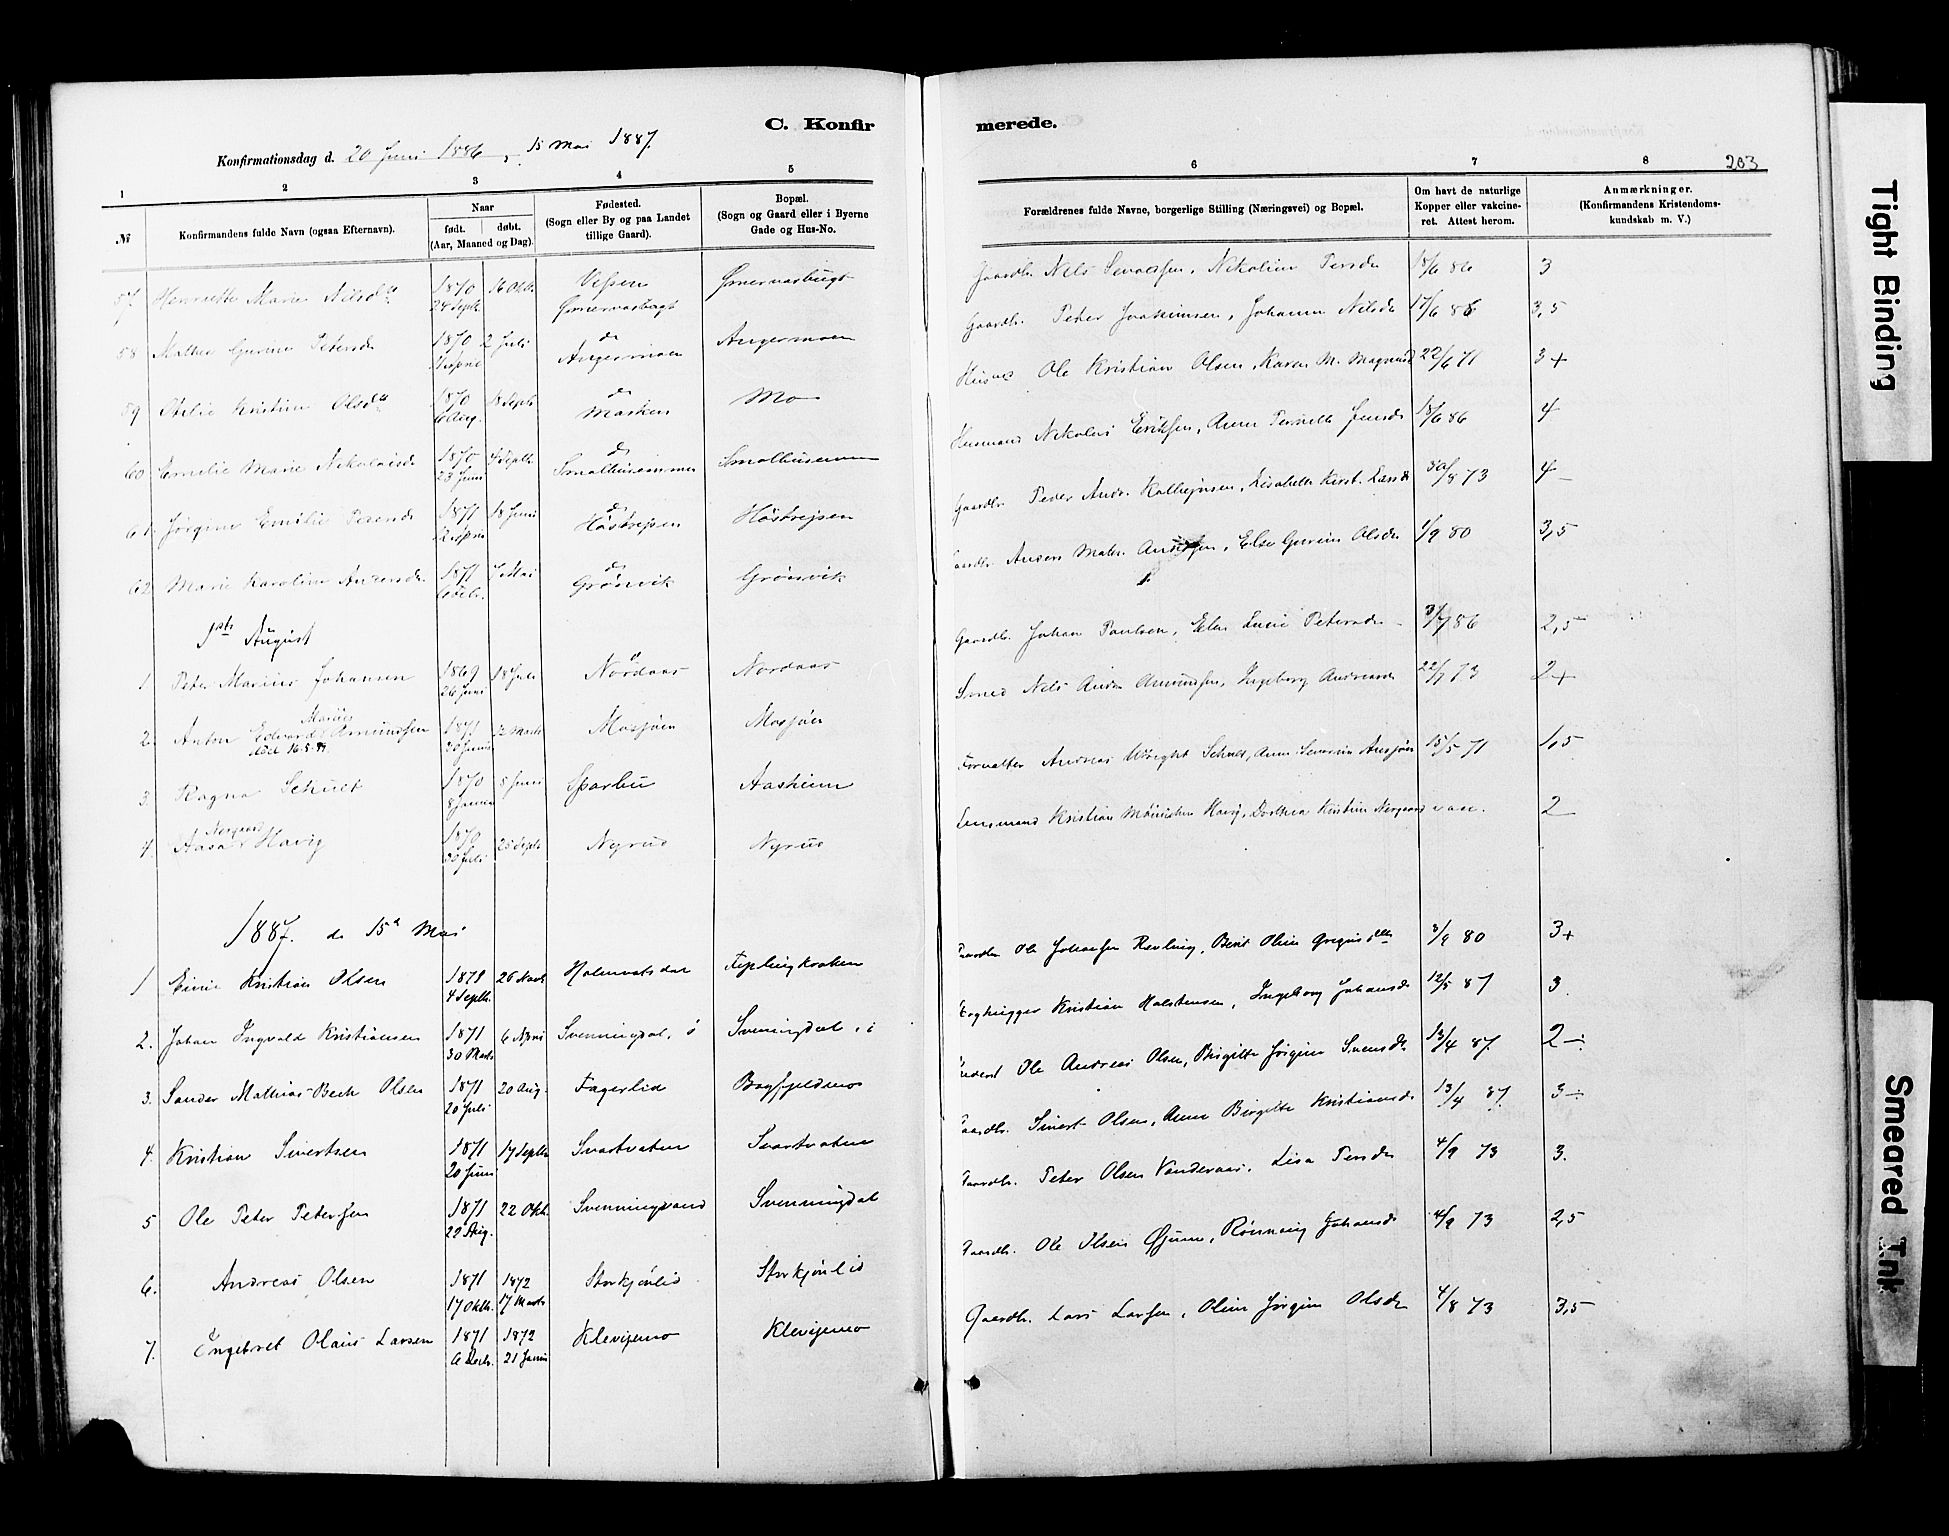 C. Konfirmerede.
Konfirmationsdag d. 20 Juni 1886, 15 Mai 1887.
203
1 2 3 4 5 6 7 8
№
Konfirmandens fulde Navn (ogsaa Efternavn).
Naar født. døbt. (Aar, Maaned og Dag).
Fødested. (Sogn eller By og paa Landet tillige Gaard).
Bopæl. (Sogn og Gaard eller i Byerne Gade og Hus-No.
Forældrenes fulde Navne, borgerlige Stilling (Næringsvei) og Bopæl.
Om havt de naturlige Kopper eller vakcineret. Attest herom.
Anmærkninger. (Konfirmandens Kristendomskundskab m. V.)
57 Henriette Marie Nilsdtr 1870 24 Septb. 16 Oktb. Vefsen 18/6 86 3
58 Mathea Gurine Petersdr 1870 2 Juli do Angermoen Angermoen Gaardbr. Peter Joakimsen, Johanna Nilsdr 17/6 86 3,5
59 Kristine Olsdtr 1870 6 Aug. 18 Septb do Marken Mo Ole Kristian Olsen, Karen M. 22/6 71 3+
60 Emelie Marie Nikolaisdr 1870 23 Juni 4 Septb. do Husmand Nikolai Eriksen, Anne Pernille Jensdr 18/6 86 4
61 Jørgine Emilie Pedersdr 1871 18 Juni do Høstrejsen Høstrejsen Gaardbr. Peder Andr. 30/8 73 4-
62 Marie Karoline Andersdr. 1871 7 Mai do Grønsvik Grønsvik Anders Andersen, Else Gurine Olsdr 1/9 80 3,5
1ste August
1 Peter Marius Johansen 1869 26 Juni 18 Juli Nordaas Nordaas Gaardbr. Johan Paulsen, Elen Lucie Petersdr 2,5
2. Anton Edvard Marius Amundsen 1871 12 Marts Mosjøen Mosjøen Smed Nils Andr. Amundsen, Ingeborg Andreasdr 22/7 73 2+
død 16.5.
3. Ragna Schult 1870 5 Juni Sparbu Aasheim Forvalter Andreas Wright Schult, Anne Severine 15/5 71 1,5
4. Aasa Norgaard Havig 1870 30 Juli 25 Septb Nyrud Nyrud Lensmand Kristian Havig, Dorthea Kristine Norgaard vac. 2
1887. de 15de Mai
1 Einie Kristian Olsen 4 Septb. 26 Novb Holmvatsdal Ole Johansen Revling, Berit Oline 3/9 80 3+
2. Johan Ingvald Kristiansen 1871 30 Marts 6 April Svenningdal, ø Svenningdal, i Kristian Halstensen, Ingeborg Johansdr 12/5 87 3
3. Sander Mathias Bech Olsen 1871 20 Juli 20 Aug. Fagerlid Bagfjeldmo Ole Andreas Olsen, Birgitte Jørgine Svensdr. 13/4 87. 2-:
4. Kristian Sivertsen 1871 20 Juni 17 Septb Svartvatn Svartvatn Gaardbr. Sivert Olsen, Anne Birgitte Kristiansdr 13/4 87. 3-:
5 Ole Peter Petersen 1871 22 Aug. 22 Oktb. Svenningvand Svenningdal Gaardbr. Peter Olsen Vanderaas, Lisa Persdr 4/9 73 3.
6. Andreas Olsen 1871 17 Oktb. 1872 17 Marts Storkjønlid Storkjønlid Gaardbr. Ole Olsen Øjum, Rønnaug Johansdr 4/9 73 2,5
7. Ingebret Olaus Larsen 1871 6 Decb. 1872 21 Janu Klevjemo Klevjemo Gaardbr. Lars Larsen, Oline Jørgine Olsdr 4/8 73 3,5
Tight Binding
Smeared Ink